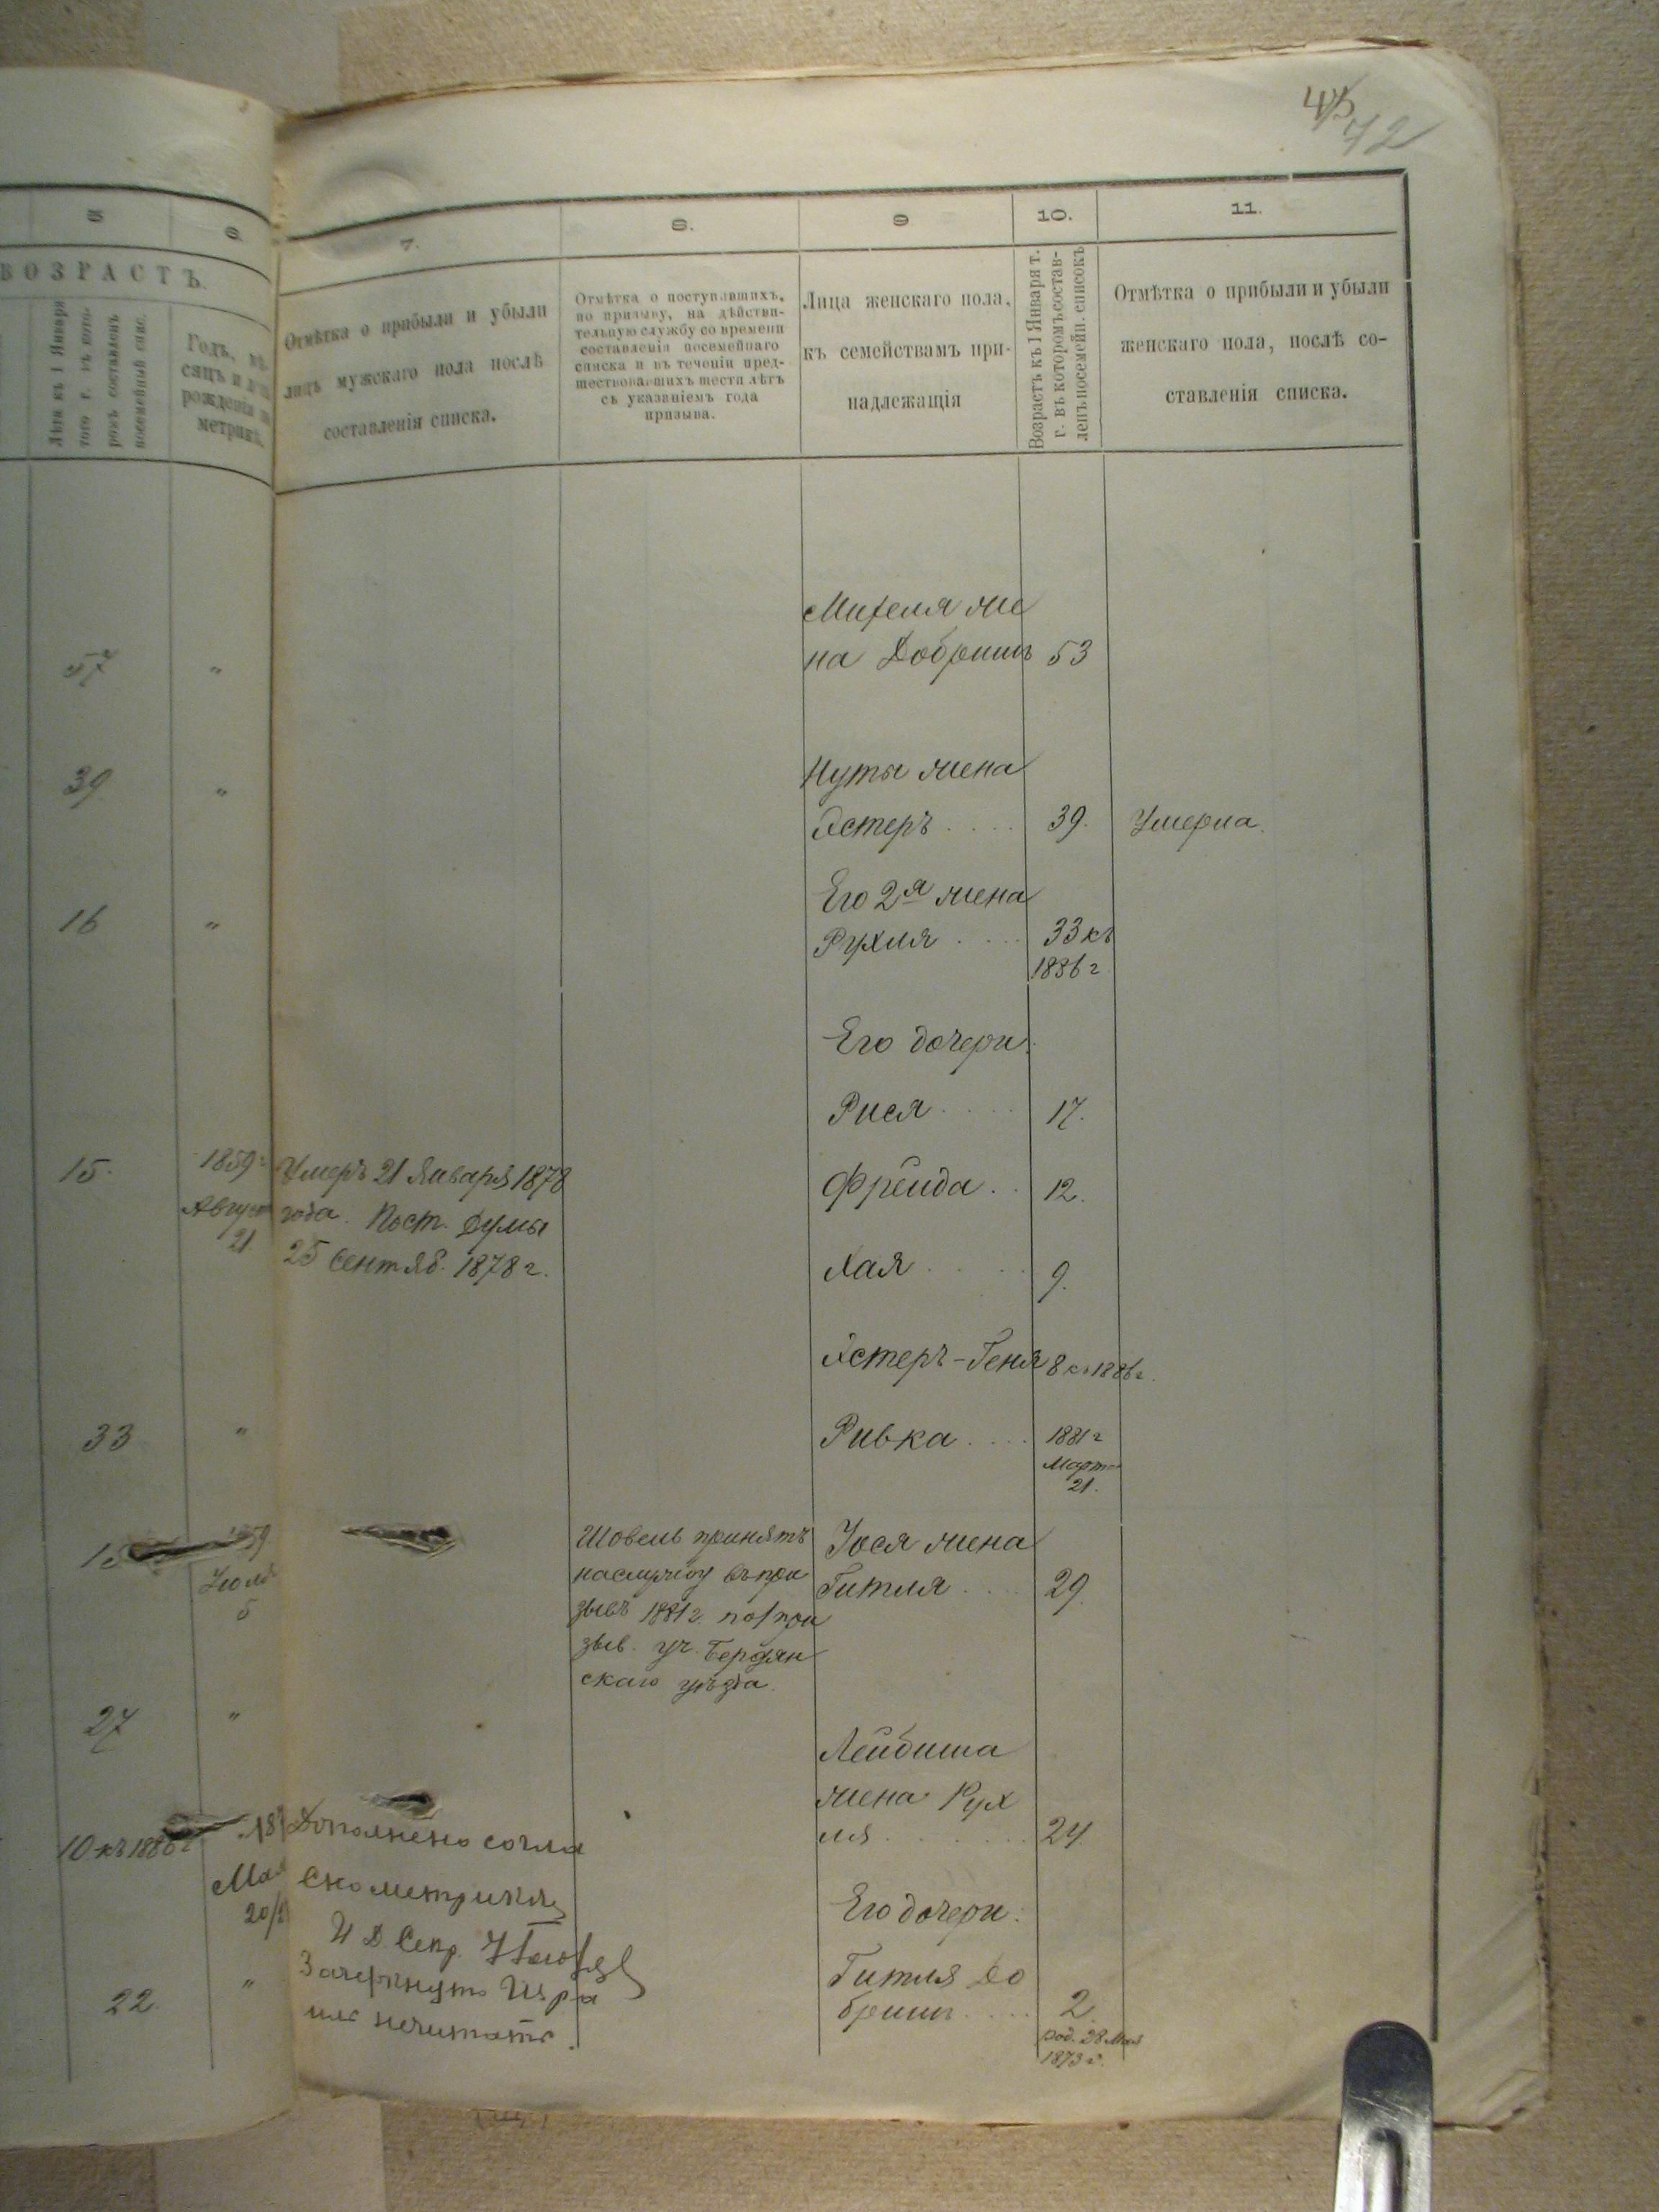 45
72
5
6.
7.
8.
9
10.
11.
ВОЗРАСТЪ.
Лѣта къ 1 Января
того г. въ кото-
ромъ составленъ
посемейный спис.
Годъ, мѣ-
сяцъ и день
рожденія по
метрикѣ.
Отмѣтка о прибыли и убыли
лицъ мужскаго пола послѣ
составленія списка.
Отмѣтка о поступившихъ,
по призыву, на дѣйстви-
тельную службу со времени
составленія посемейнаго
списка и въ теченіи пред-
шествовавшихъ шести лѣтъ
съ указаніемъ года
призыва.
Лица женскаго пола,
къ семействамъ при-
надлежащія
Возрастъ къ 1 Января т.
г. въ которомъ состав-
ленъ посемейн. списокъ
Отмѣтка о прибыли и убыли
женскаго пола, послѣ со-
ставленія списка.
57 "
Михеля же
на Добришъ 53
39 "
Нуты жена
Эстеръ .... 39. Умерла.
16 "
Его 2я жена
Рухля .... 33 къ
1886 г
Его дочери:
Рися .... 17.
15. 1859 г
Август
21.
Умеръ 21 Января 1878
года. Пост. Думы
25 Сентяб. 1878 г.
Фрейда .. 12.
Хая .... 9.
Эстеръ-Геня 8 къ 1886 г.
33 "
Ривка .... 1881 г
Марта
21.
15 59
Іюля
5
Шовель принятъ
на службу въ при
зывъ 1881 г. по 1 при
зыв. уч. Бердян
скаго уѣзда.
Іося жена
Гитля .... 29.
27 "
Лейбиша
жена Рух
ля ....... 24.
10 къ 1886 г
Мая
20/
Дополнено согла
сно метрики
И Д Секр.
Зачеркнуто Изра
иль нечитать.
Его дочери:
22. "
Гитля До
бришъ .... 2.
род. 28 Мая
1873 г.